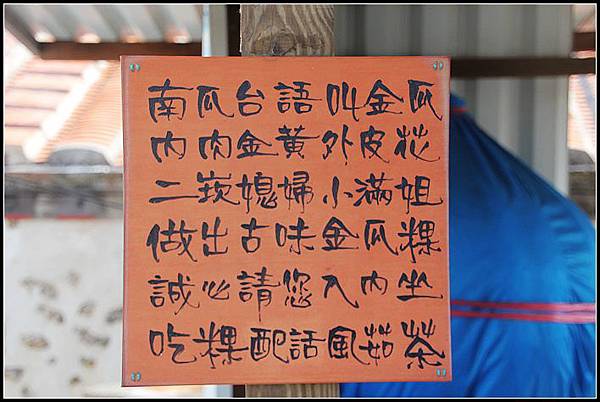 南瓜台語叫金瓜
內肉金黃外皮花
二崁媳婦小滿姐
做出古味金瓜粿
誠心請您入內坐
吃粿配話風茹茶